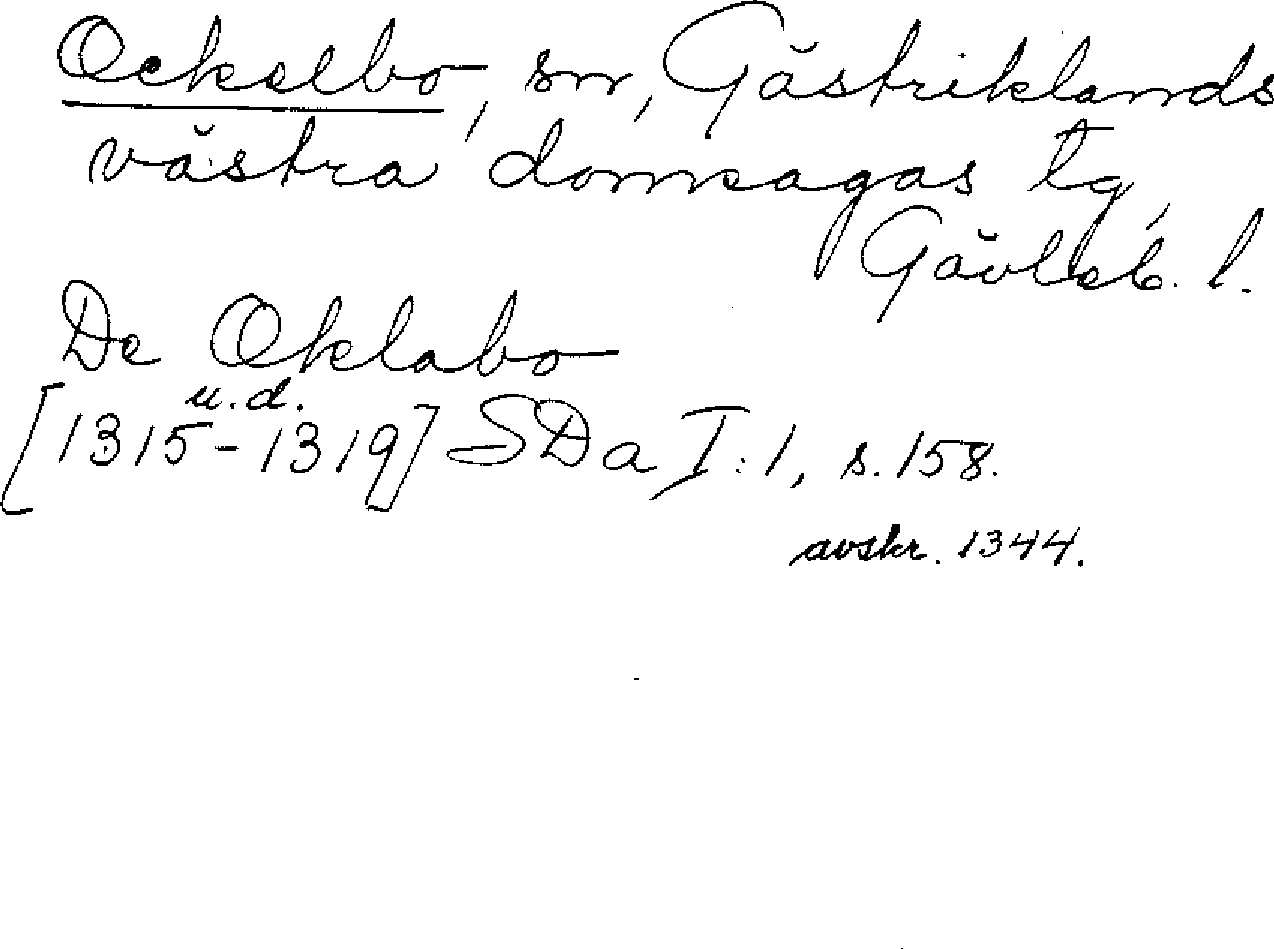 Ockelbo, sn, Gästriklands
västra domsagas tg,
Gävleb. l.
De Oklabo
u.d.
[1315-1319] SDa I:1, s. 158.
avskr. 1344.